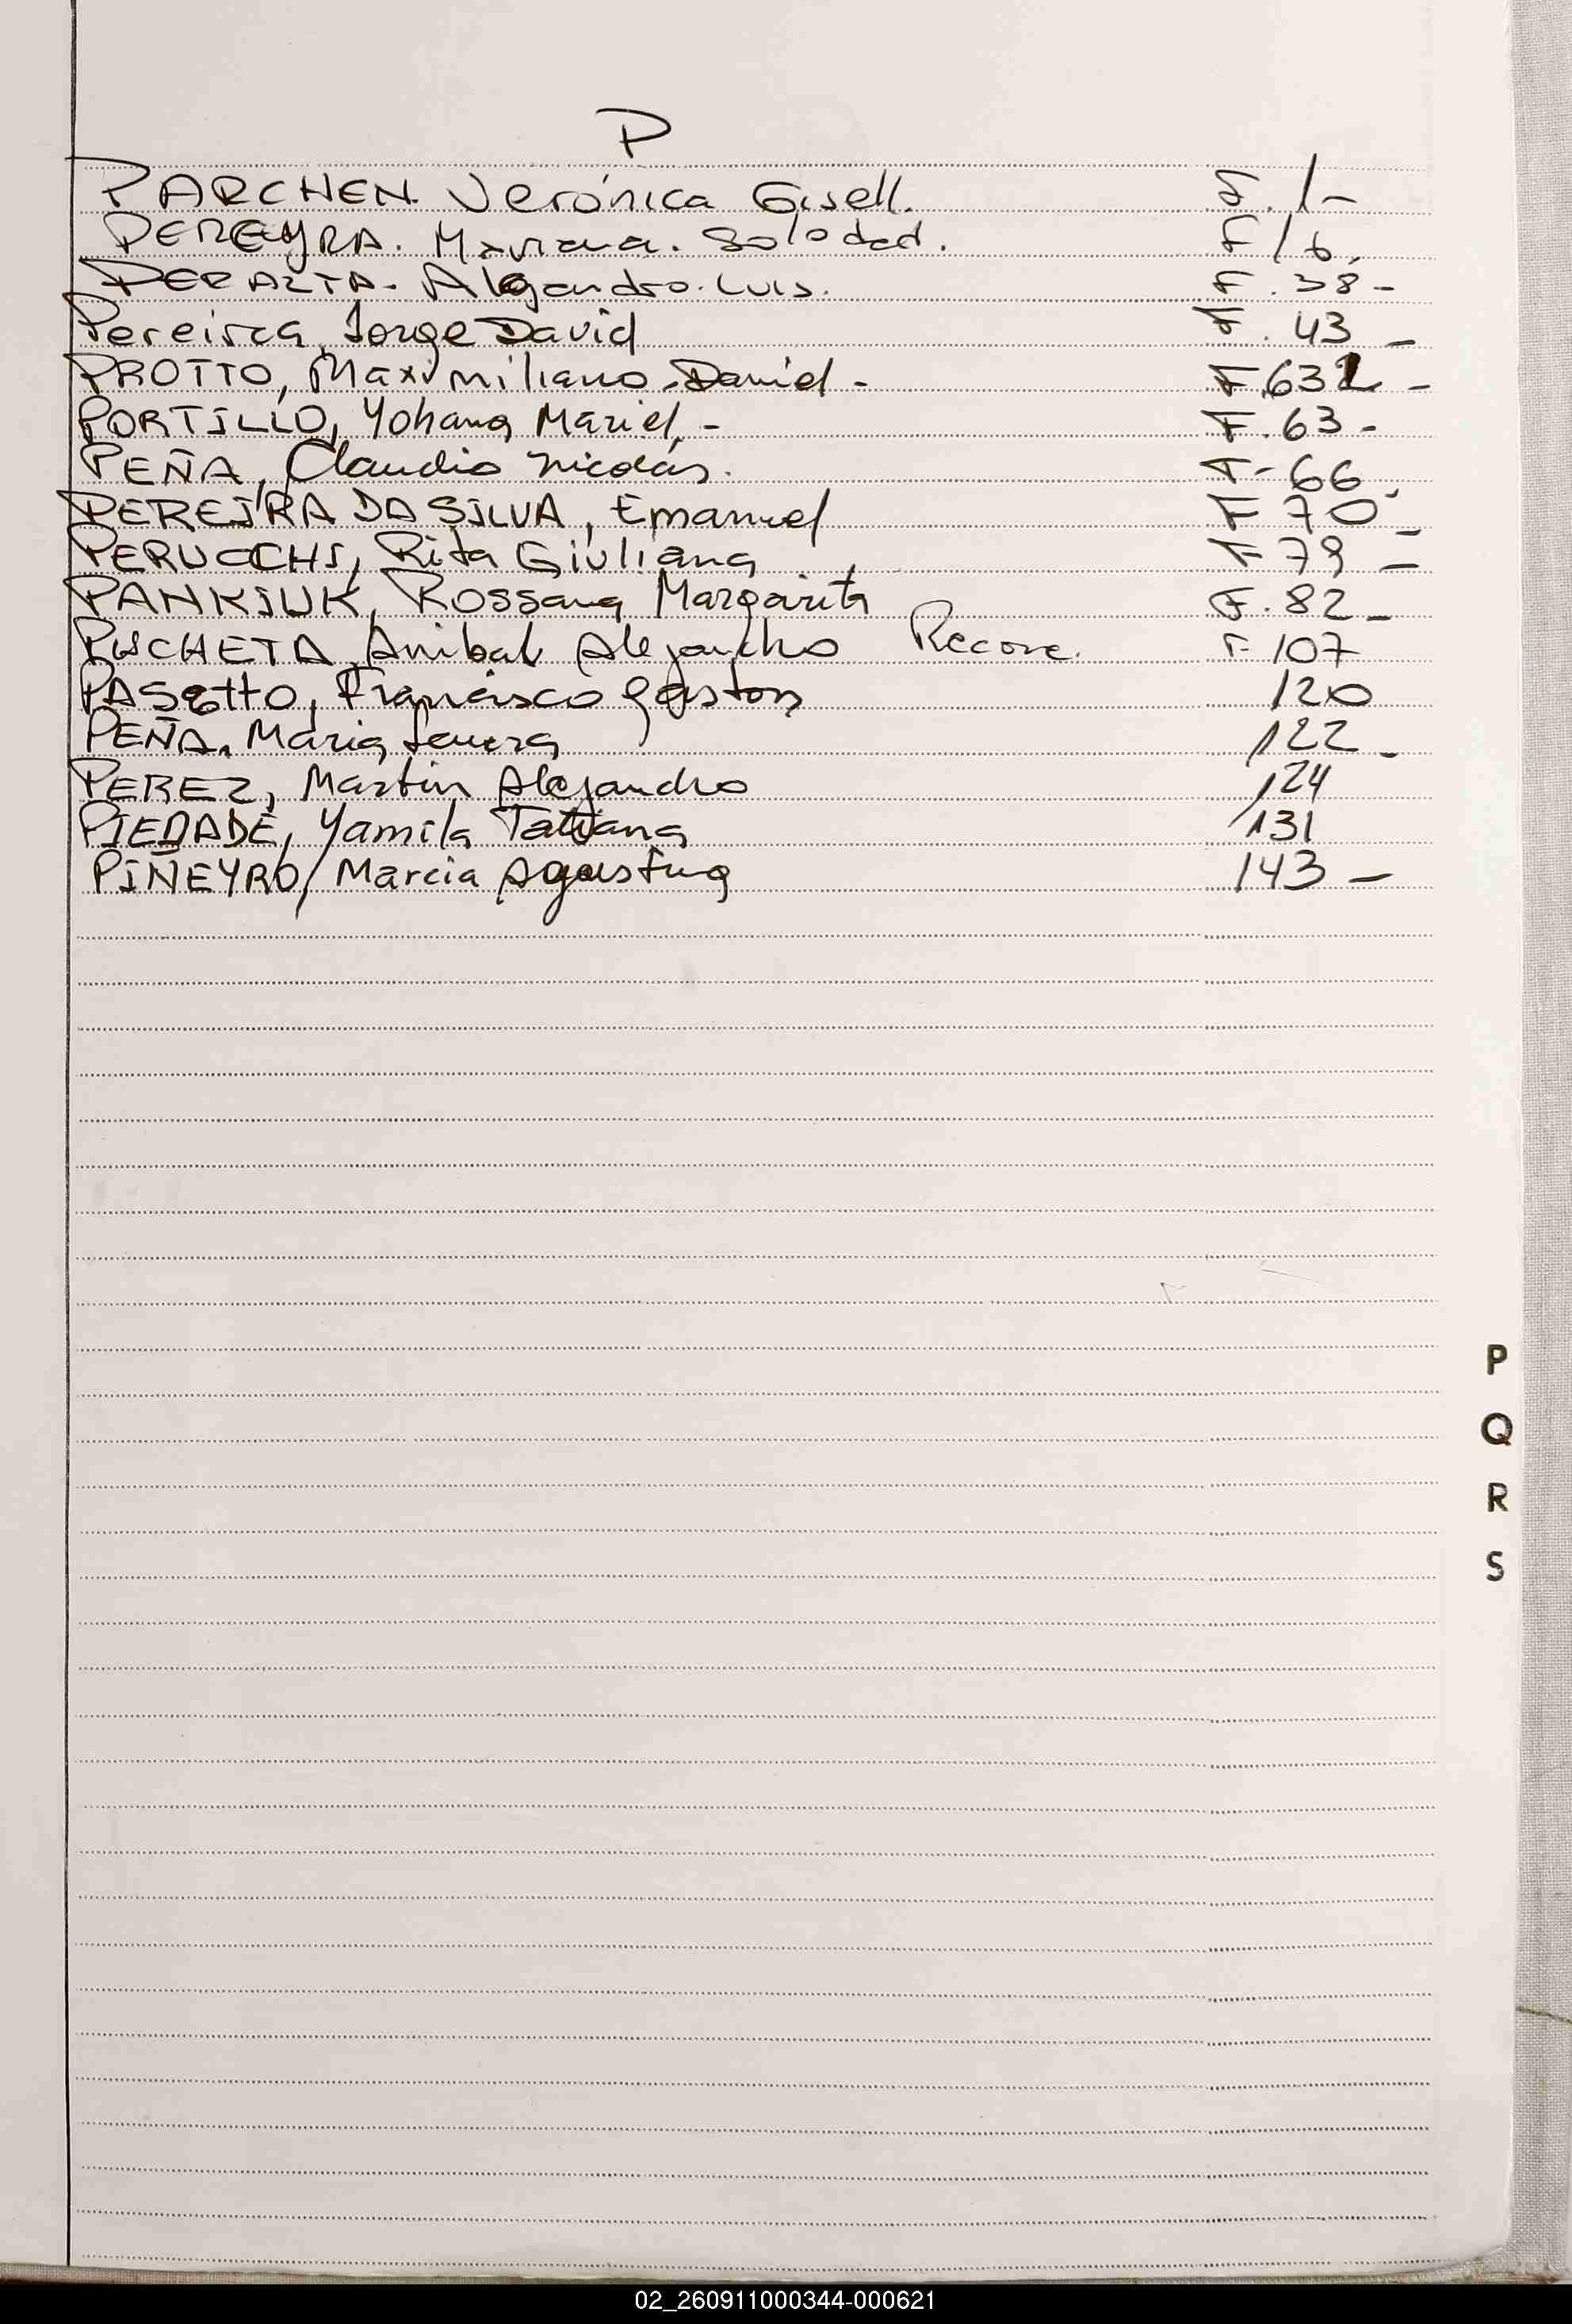 P
PARCHEN. Verónica Gisell. F. 1-
PEREYRA. Mariana. Soledad. F 16.
PERALTA. Alejandro. Luis. F. 38-
Pereira, Jorge David F. 43 -
PROTTO, Maximiliano Daniel - F. 632 -
PORTILLO, Yohana Mariel, - F. 63 -
PEÑA, Claudio Nicolás. F- 66.
PEREIRA DA SILVA, Emanuel F 70 -
PERUCCHI, Rita Giuliana F- 79 -
PANKIUK, Rossana Margarita F. 82 -
PUCHETA, Anibal Alejandro F- 107
PASETTO, Francisco Gaston 120
PEÑA, Maria 122 -
PEREZ, Martin Alejandro 124
PIEDADE, Yamila Tatiana 131
PIÑEYRO, Marcia Agostina 143 -
P
Q
R
S
02_260911000344-000621